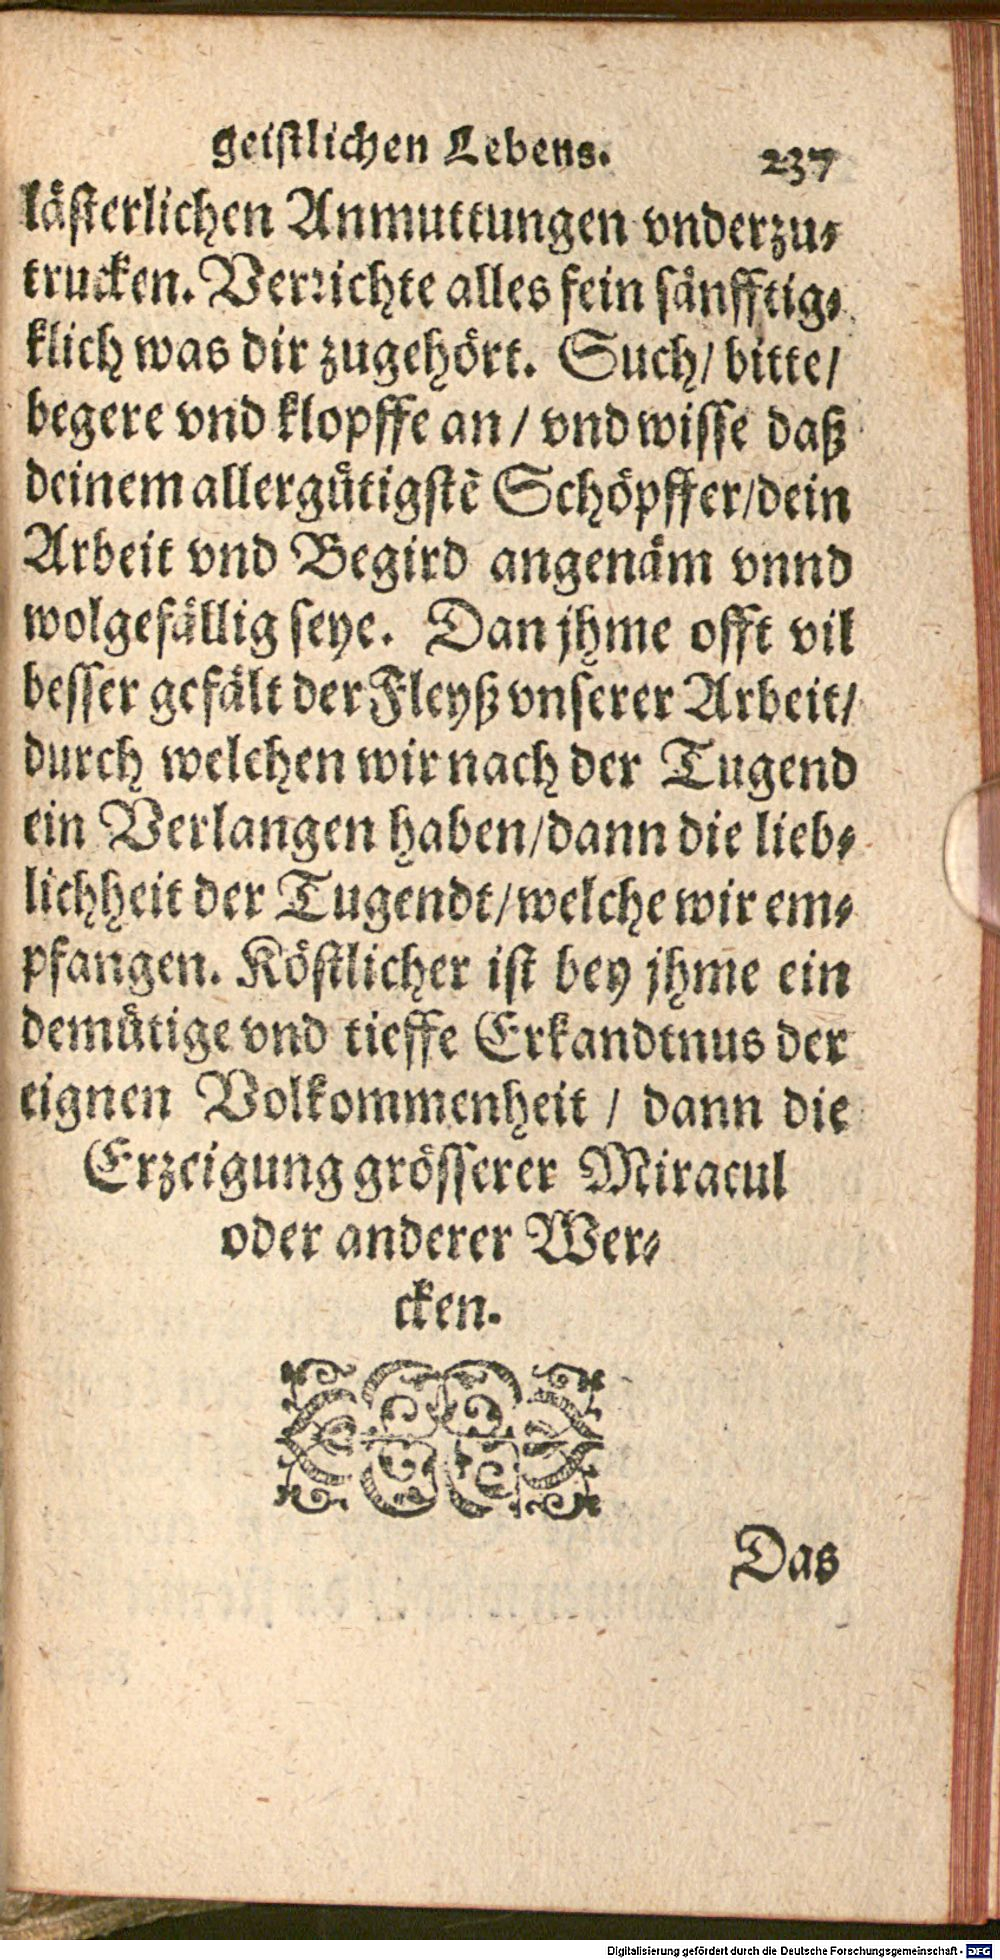 geistlichen Lebens. 237
lästerlichen Anmuttungen vnderzu⸗
trucken. Verrichte alles fein sänfftig⸗
klich was dir zugehört. Such/ bitte/
begere vnd klopffe an / vnd wisse daß
deinem allergütigstẽ Schöpffer/dein
Arbeit vnd Begird angenäm vnnd
wolgefällig seye. Dan jhme offt vil
besser gefält der Fleyß vnserer Arbeit/
durch welchen wir nach der Tugend
ein Verlangen haben/dann die lieb⸗
lichheit der Tugendt/welche wir em⸗
pfangen. Köstlicher ist bey jhme ein
demütige vnd tieffe Erkandtnus der
eignen Volkommenheit / dann die
Erzeigung grösserer Miracul
oder anderer Wer⸗
cken.
Das
Digitalisierung gefördert durch die Deutsche Forschungsgemeinschaft - DFG